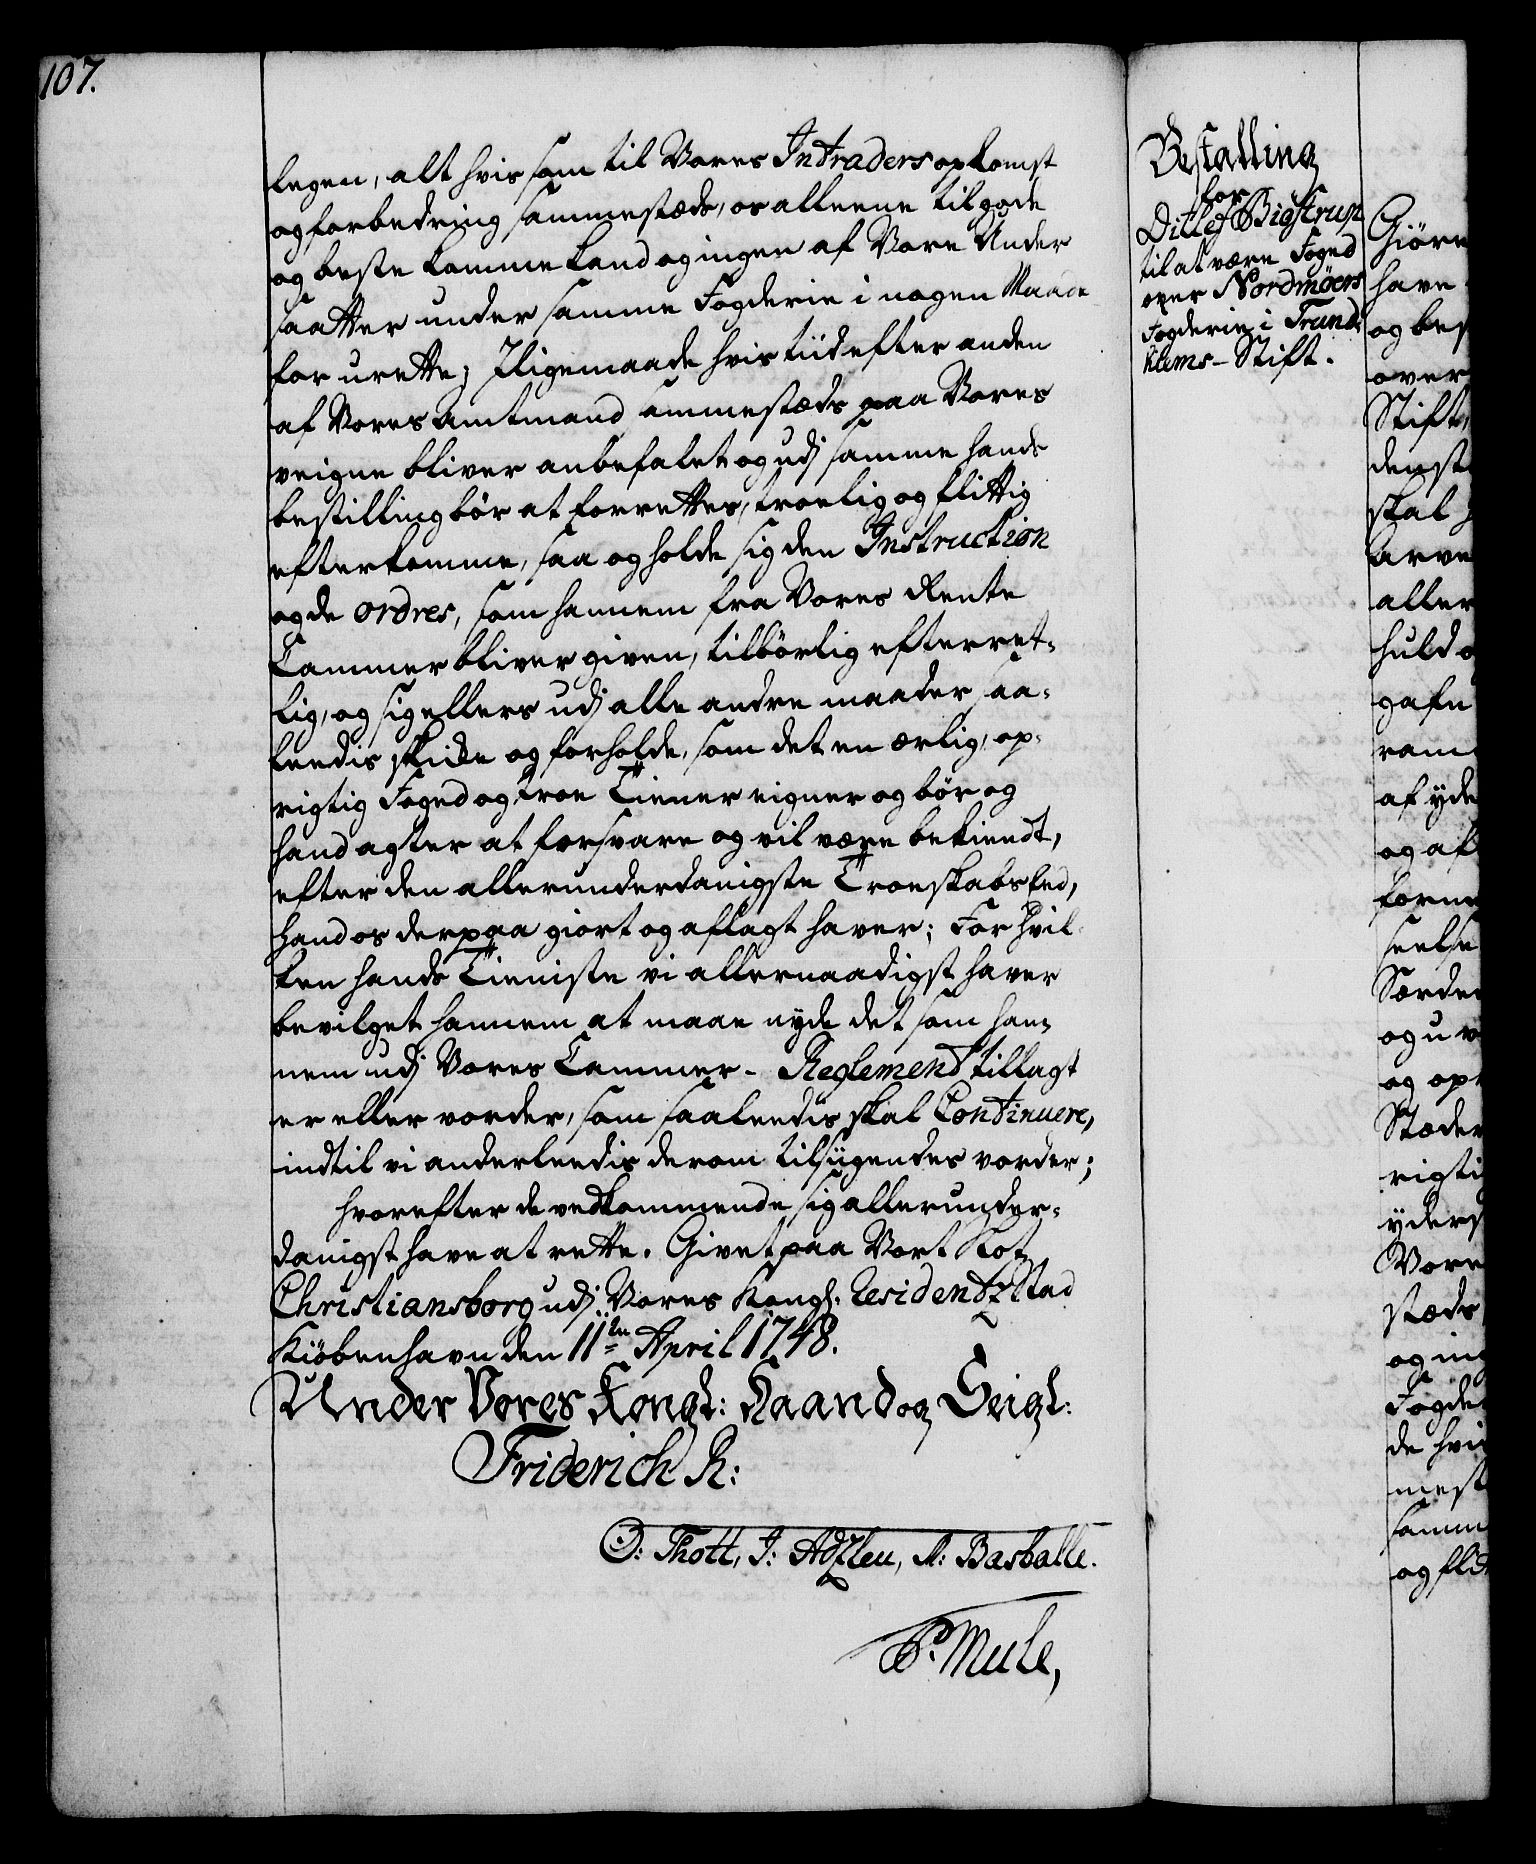 107.
legen, alt hvis som til Vores Intraders opkomst
og forbedring sammestæds, os alleene til gode
og beste komme kand og ingen af Vore Under
saatter under samme Fogderie i nogen Maade
for urette; Iligemaade hvis tiid efter anden
af Vores Amtmand sammestæds paa Vores
veigne bliver anbefalet og udj samme hands
bestilling bør at forrettes, troelig og flittig
efterkomme, saa og holde sig den Instruction
og de ordres, som hannem fra Vores Rente
Cammer bliver given, tilbørlig efterret-
lig, og sig ellers udj alle andre maader saa-
leedis skicke og forholde, som det en ærlig, op-
rigtig Foged og troe Tiener eigner og bør og
hand agter at forsvare og vil være bekiendt,
efter den allerunderdanigste Troeskabs Eed,
hand os derpaa giort og aflagt haver; For hvil-
ken hands Tieniste vi allernaadigst haver
bevilget hannem at maae nyde det som han-
nem udj Vores Cammer-Reglement tillagt
er eller vorder, som saaleedis skal Continuere,
indtil vi anderleedis derom tilsigendes vorder;
hvorefter de vedkommende sig allerunder-
danigst have at rette. Givet paa Vort Slot
Christiansborg udj Vores Kongl: Residentz Stad
Kiøbenhavn den 11ten April 1748.
Under Vores Kongl: Haand og Seigl:
Friderich R:
O: Thott, J: Adzleu, M: Basballe.
P. Mule,
Bestalling
for
Ditlef Bigstrup
til at være Foged
over Nordmøers
Fogderie i Trund-
hiems-Stift.
Giøre
have
og bes
over
Stift,
denst
skal
arve
aller
huld
gafn
ram
af yde
og af
forne
seelse
Særde
og u
og op
Stæder
rigti
yders
Vore
stæds
og in
Fogde
de hvi
mest
samm
og flit